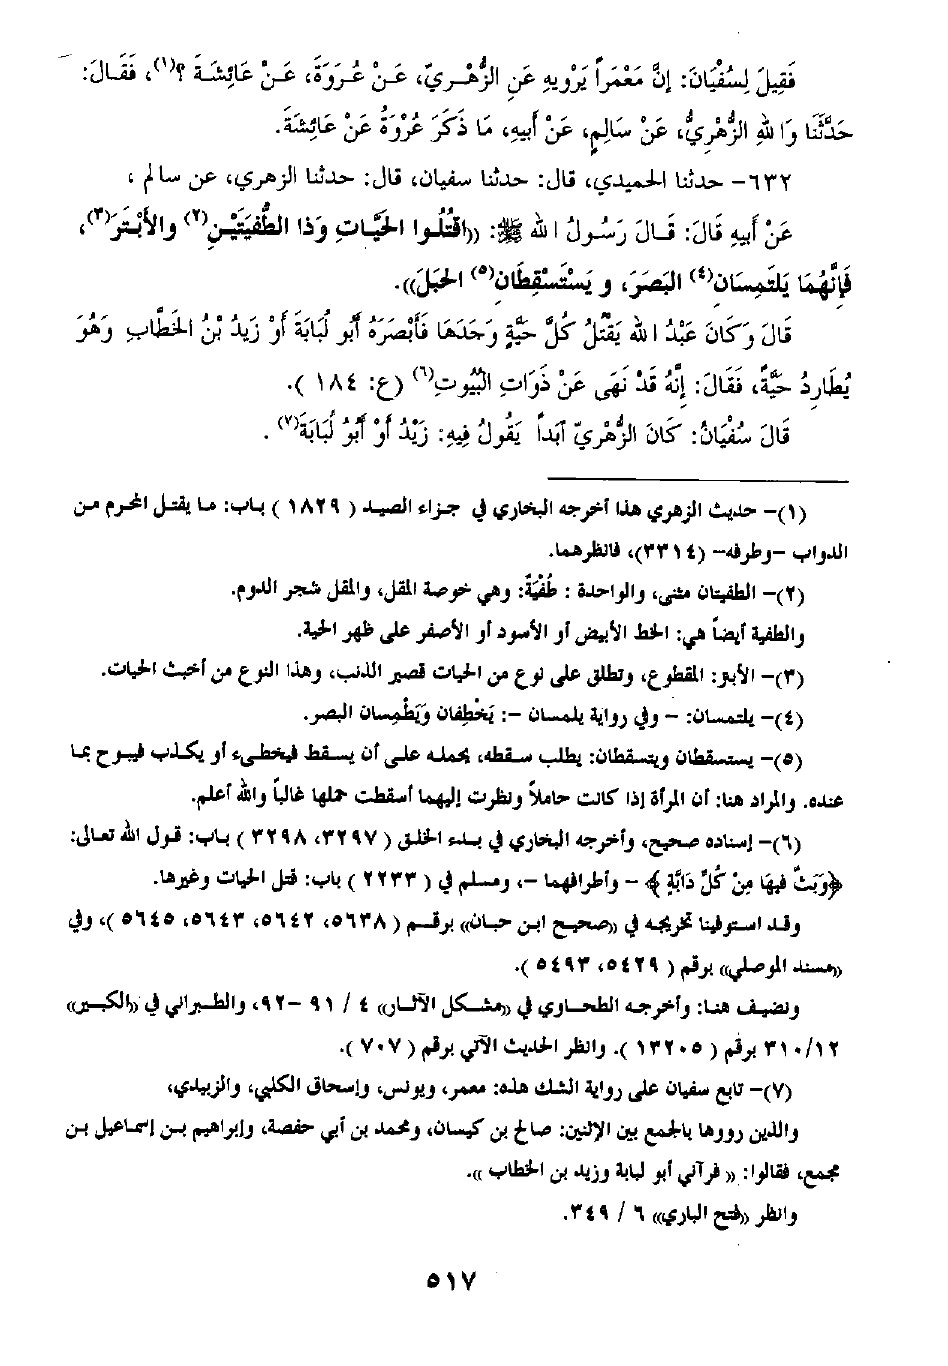 فَقِيلَ لِسُفْيَانَ: إِنَّ مَعْمَراً يَرْوِيهِ عَنِ الزُّهْرِيّ، عَنْ عُرْوَةَ، عَنْ عَائِشَةَ ؟(١)، فَقَالَ:
حَدَّثَنَا وَاللهِ الزُّهْرِيُّ، عَنْ سَالِمٍ، عَنْ أَبِيهِ، مَا ذَكَرَ عُرْوَةُ عَنْ عَائِشَةَ.
٦٣٢- حدثنا الحميدي، قال: حدثنا سفيان، قال: حدثنا الزهري، عن سالم ،
عَنْ أَبِيهِ قَالَ: قَالَ رَسُولُ اللهِ ﷺ: «اقْتُلُوا الحَيَّاتِ وَذَا الطُّفْيَتَيْنِ(٢) والأَبْتَرَ(٣)،
فَإِنَّهُمَا يَلْتَمِسَانِ(٤) البَصَرَ، وَيَسْتَسْقِطَانِ(٥) الحَبَلَ».
قَالَ وَكَانَ عَبْدُ اللهِ يَقْتُلُ كُلَّ حَيَّةٍ وَجَدَهَا فَأَبْصَرَهُ أَبُو لُبَابَةَ أَوْ زَيْدُ بْنُ الخَطَّابِ وَهُوَ
يُطَارِدُ حَيَّةً، فَقَالَ: إِنَّهُ قَدْ نَهَى عَنْ ذَوَاتِ البُيُوتِ(٦) (ع: ١٨٤ ).
قَالَ سُفْيَانُ: كَانَ الزُّهْرِيّ أَبَداً يَقُولُ فِيهِ: زَيْدُ أَوْ أَبُو لُبَابَةَ(٧) .
(١)- حديث الزهري هذا أخرجه البخاري في جزاء الصيد ( ١٨٢٩ ) باب: ما يقتل المحرم من
الدواب -وطرفه- (٣٣١٤)، فانظرهما.
(٢)- الطفيتان مثنى، والواحدة : طُفْيَةٌ: وهي خوصة المقل، والمقل شجر الدوم.
والطفية أيضاً هي: الخط الأبيض أو الأسود أو الأصفر على ظهر الحية.
(٣)- الأبتر: المقطوع، وتطلق على نوع من الحيات قصير الذنب، وهذا النوع من أخبث الحيات.
(٤)- يلتمسان: - وفي رواية يلمسان -: يَخْطِفان وَيَطْمِسان البصر.
(٥)- يستسقطان ويتسقطان: يطلب سقطه، يحمله على أن يسقط فيخطىء أو يكذب فيبوح بما
عنده. والمراد هنا: أن المرأة إذا كانت حاملاً ونظرت إليهما أسقطت حملها غالباً والله أعلم.
(٦)- إسناده صحيح، وأخرجه البخاري في بدء الخلق ( ٣٢٩٧، ٣٢٩٨ ) باب: قول الله تعالى:
﴿وَبَثَّ فِيهَا مِنْ كُلِّ دَابَّةٍ﴾ - وأطرافهما -، ومسلم في ( ٢٢٣٣ ) باب: قتل الحيات وغيرها.
وقد استوفينا تخريجه في «صحيح ابن حبان» برقم ( ٥٦٣٨، ٥٦٤٢، ٥٦٤٣، ٥٦٤٥ )، وفي
«مسند الموصلي» برقم ( ٥٤٢٩، ٥٤٩٣ ).
ونضيف هنا: وأخرجه الطحاوي في «مشكل الآثار» ٤ / ٩١ -٩٢، والطبراني في «الكبير»
٣١٠/١٢ برقم ( ١٣٢٠٥ ). وانظر الحديث الآتي برقم ( ٧٠٧ ).
(٧)- تابع سفيان على رواية الشك هذه: معمر، ويونس، وإسحاق الكلبي، والزبيدي،
والذين رووها بالجمع بين الإثنين: صالح بن كيسان، ومحمد بن أبي حفصة، وإبراهيم بن إسماعيل بن
مجمع، فقالوا: « فرآني أبو لبابة وزيد بن الخطاب ».
وانظر «فتح الباري» ٦ / ٣٤٩.
٥١٧